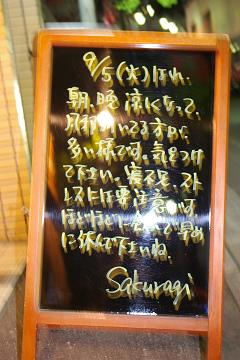 9/5(火)はれ.
朝.晩 涼しくなって、
风邪ひいてる方が
多い様です。気をつけ
て下さい。寝不足、スト
レスには要注意です
ほどほどにして早め
に休んで下さいね。
Sakuragi